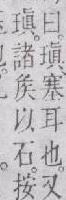 曰。瑱塞耳也。又
瑱。諸矦以石。按